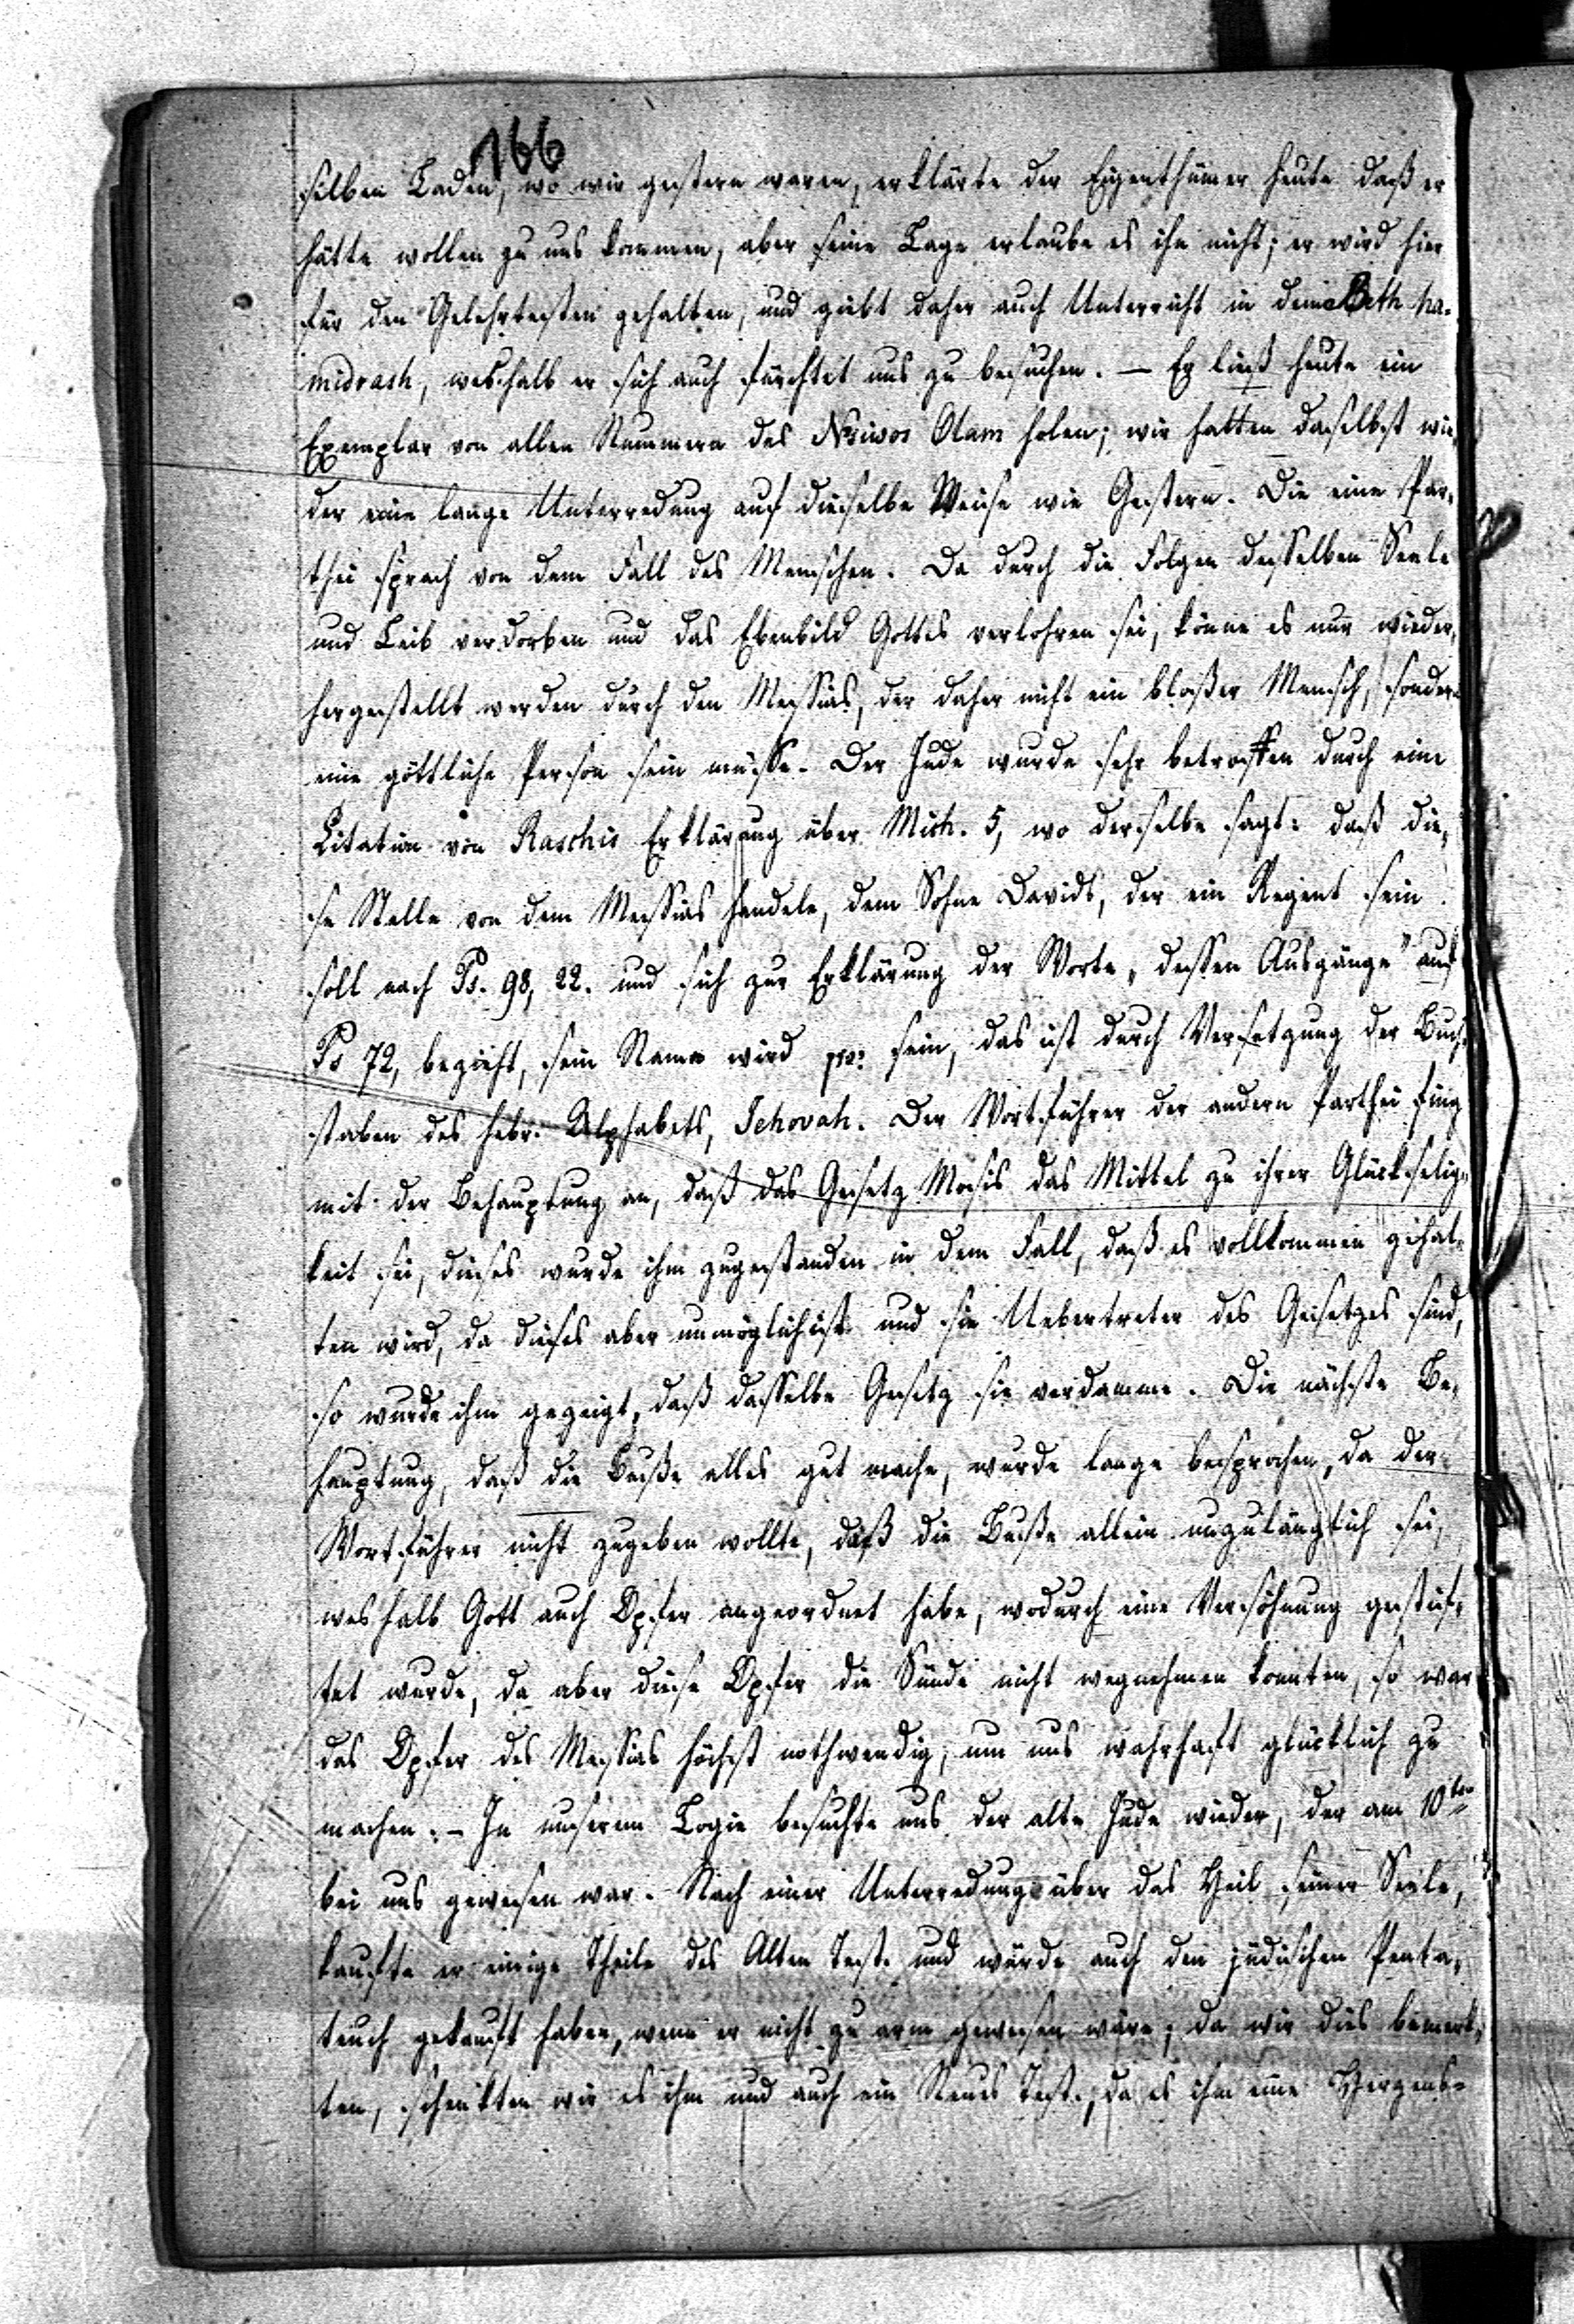 166
selben Laden, wo wir gestern waren, erklärte der Eigenthümer heute daß er
hätte wollen zu uns kommen, aber seine Lage erlaube es ihm nicht; er wird hier
für den Gelehrtesten gehalten, und giebt daher auch Unterricht in dem Beth ha-
midrash, weshalb er sich auch fürchtet uns zu besuchen. — Er ließ heute ein
Exemplar von allen Nummern des Nsiwos Olam holen; wir hatten daselbst wie-
der eine lange Unterredung auf dieselbe Weise wie Gestern. Die eine Par-
thei sprach von dem Fall des Menschen. Da durch die Folgen desselben Seele
und Leib verdorben und das Ebenbild Gottes verlohren sei, könne es nur wieder-
hergestellt werden durch den Messias, der daher nicht ein bloßer Mensch, sondern
eine göttliche Person sein müsse. Der Jude wurde sehr betroffen durch eine
Citation von Raschis Erklärung über Mich. 5, wo derselbe sagt: daß die-
se Stelle von dem Messias handele, dem Sohne Davids, der ein Regent sein
soll nach Ps. 98, 22. und sich zur Erklärung der Worte „dessen Ausgänge" auf
Ps 72, bezieht, sein Name wird ינון sein, das ist durch Versetzung der Buch-
staben des hebr. Alphabets, Jehovah. Der Wortführer der andern Parthei fing
mit der Behauptung an, daß das Gesetz Mosis das Mittel zu ihrer Glückselig-
keit sei, dieses wurde ihm zugestanden in dem Fall, daß es vollkommen gehal-
ten wird, da dieses aber unmöglich ist und sie Uebertreter des Gesetzes sind,
so wurde ihm gezeigt, daß dasselbe Gesetz sie verdamme. Die nächste Be-
hauptung, daß die Buße alles gut mache, wurde lange besprochen, da der
Wortführer nicht zugeben wollte, daß die Buße allein unzulänglich sei,
weshalb Gott auch Opfer angeordnet habe, wodurch eine Versöhnung gestif-
tet wurde, da aber diese Opfer die Sünde nicht wegnehmen konnten, so war
das Opfer des Messias höchst nothwendig, um uns wahrhaft glücklich zu
machen. – In unserem Logie besuchte uns der alte Jude wieder, der am 10ten
bei uns gewesen war. Nach einer Unterredung über das Heil seiner Seele,
kaufte er einige Theile des Alten Test. und würde auch den jüdischen Penta-
teuch gekauft haben, wenn er nicht zu arm gewesen wäre; da wir dies bemerk-
ten, schenkten wir es ihm und auch ein Neues Test., da es ihm eine Herzens-